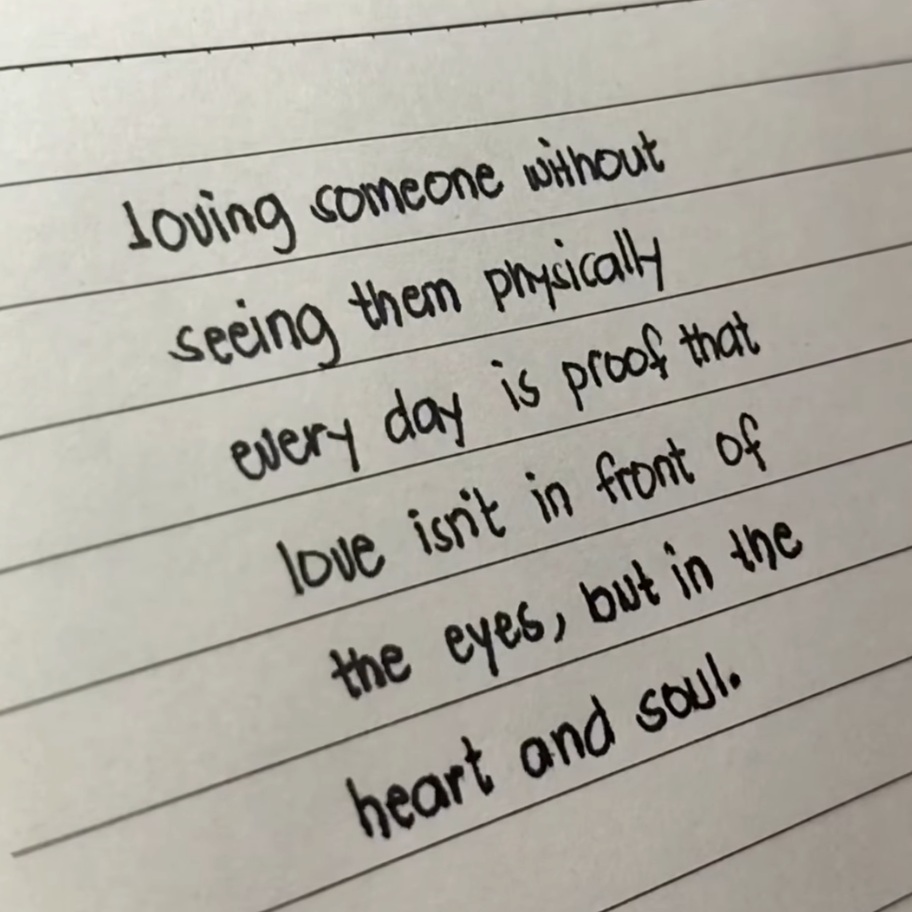 loving someone without
seeing them physically
every day is proof that
love isn't in front of
the eyes, but in the
heart and soul.